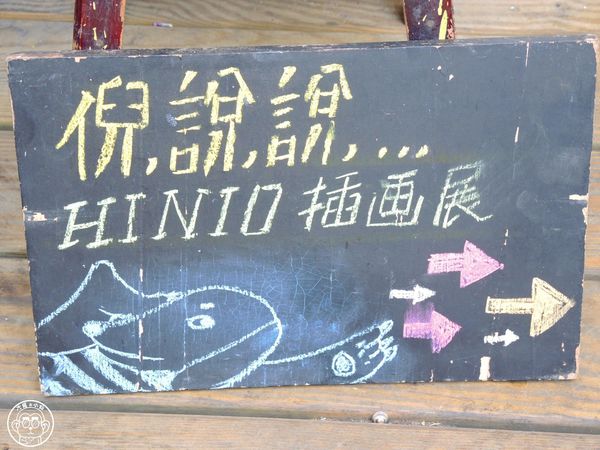 倪,說,說,...
HINIO 插画展